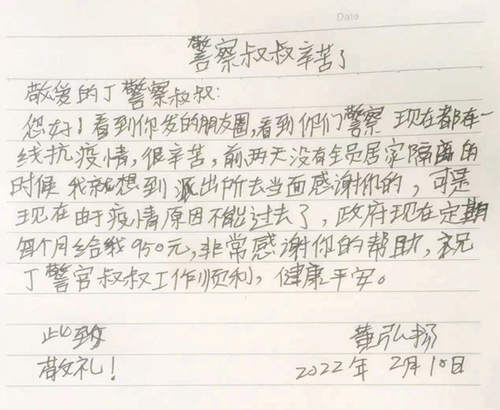 Date
警察叔叔辛苦了
敬爱的丁警察叔叔:
您好!看到你发的朋友圈,看到你们警察现在都在一
线抗疫情,很辛苦,前两天没有全员居家隔离的
时候我就想到派出所去当面感谢你的,可是
现在由于疫情原因不能过去了,政府现在定期
每个月给我950元,非常感谢你的帮助,祝
丁警官叔叔工作顺利,健康平安。
此致
黄弘扬
敬礼!
2022年2月10日